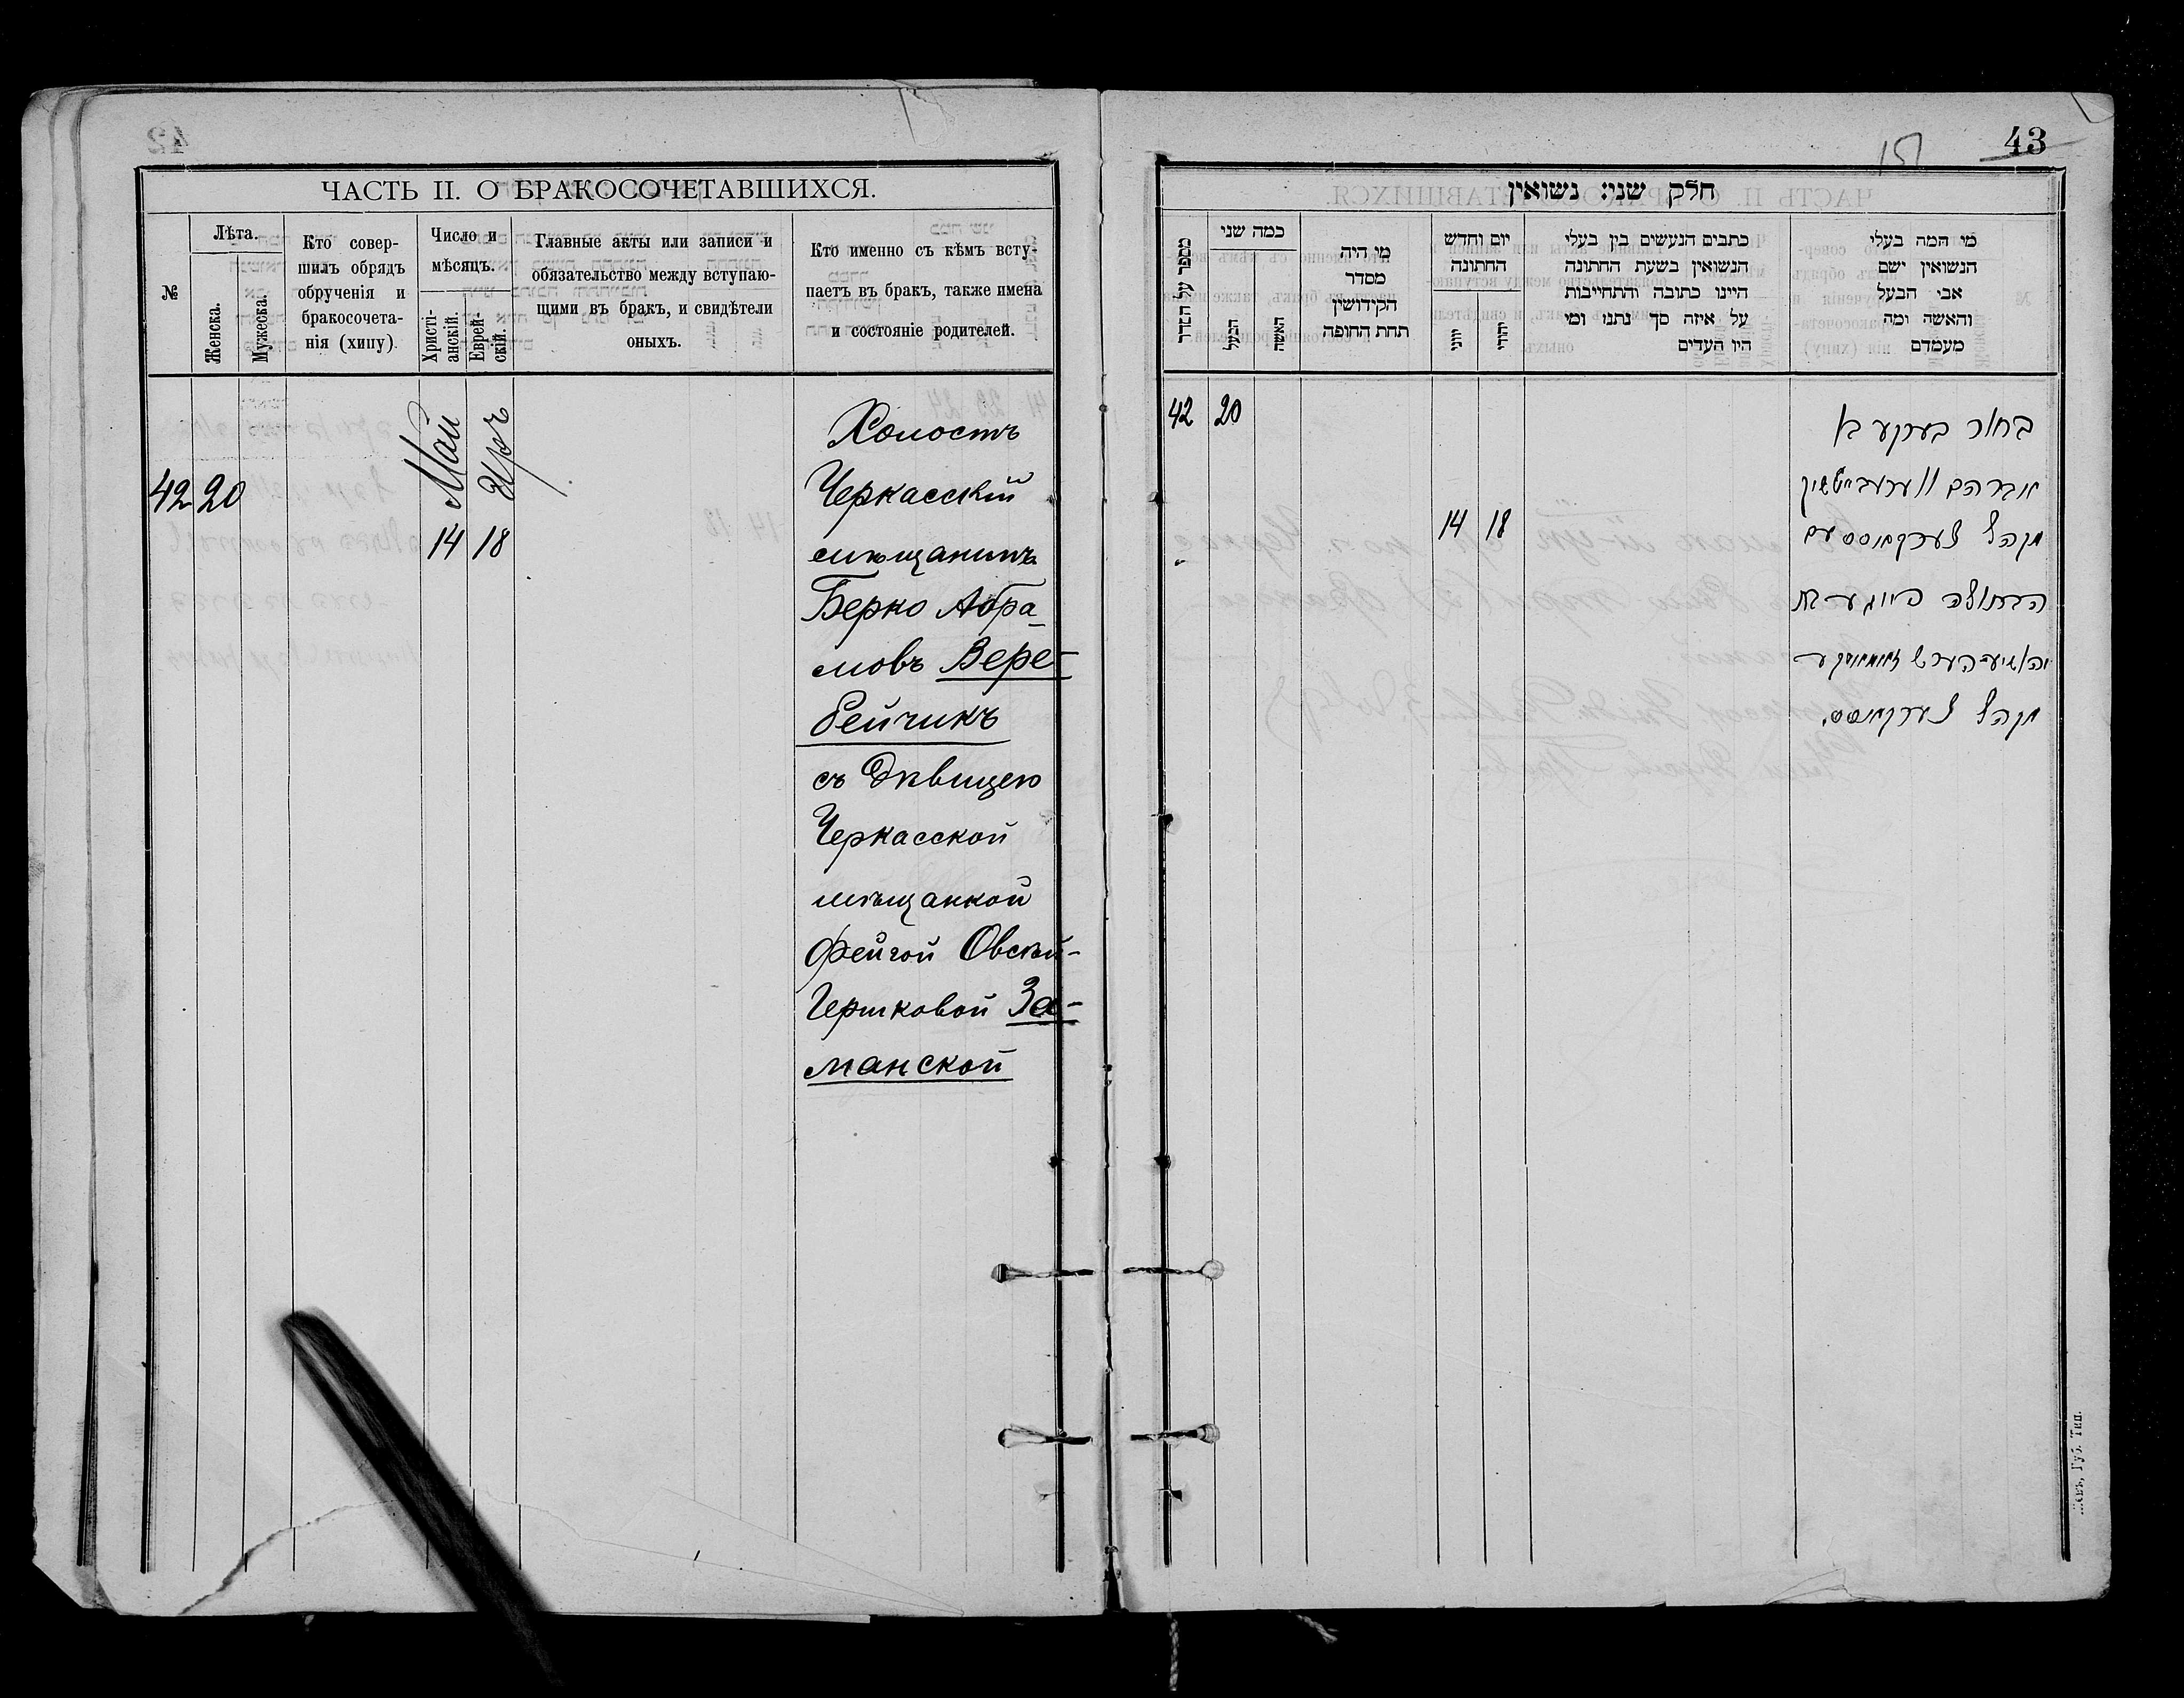 ЧАСТЬ II. О БРАКОСОЧЕТАВШИХСЯ.
№
Лѣта.
Женска.
Мужеска.
Кто совер-
шилъ обрядъ
обрученія и
бракосочета-
нія (хипу)
Число и
мѣсяцъ.
Христі-
анскій.
Еврей-
скій.
Главные акты или записи и
обязательство между вступаю-
щими въ бракъ, и свидѣтели
оныхъ.
Кто именно съ кѣмъ всту-
паетъ въ бракъ, также имена
и состояніе родителей.
42 20
Май
14 18
Холостъ
Черкасскій
мѣщанинъ
Берко Абра
мовъ Вере-
бейчикъ
съ Дѣвицею
Черкасской
мѣщанкой
Фейгой Овсѣй-
Гершковой За-
манской
43
151
חלק שני: נשואין
מספר על הסדר
כמה שני
הבעל
האשה
מי היה
מסדר
הקידושין
תחת החופה
יום וחדש
החתונה
יווני
יהודי
כתבים הנעשים בין בעלי
הנשואין בשעת החתונה
היינו כתובה והתחייבות
על איזה סך נתנו ומי
היו העדים
מי המה בעלי
הנשואין ושם
אבי הבעל
והאשה ומה
מעמדם
42 20
14 18
בחור בערקע בן
אברהם ווערעבייטשיק
מקהל
הבתולה פייגע בת
מקהל
Губ. Тип.